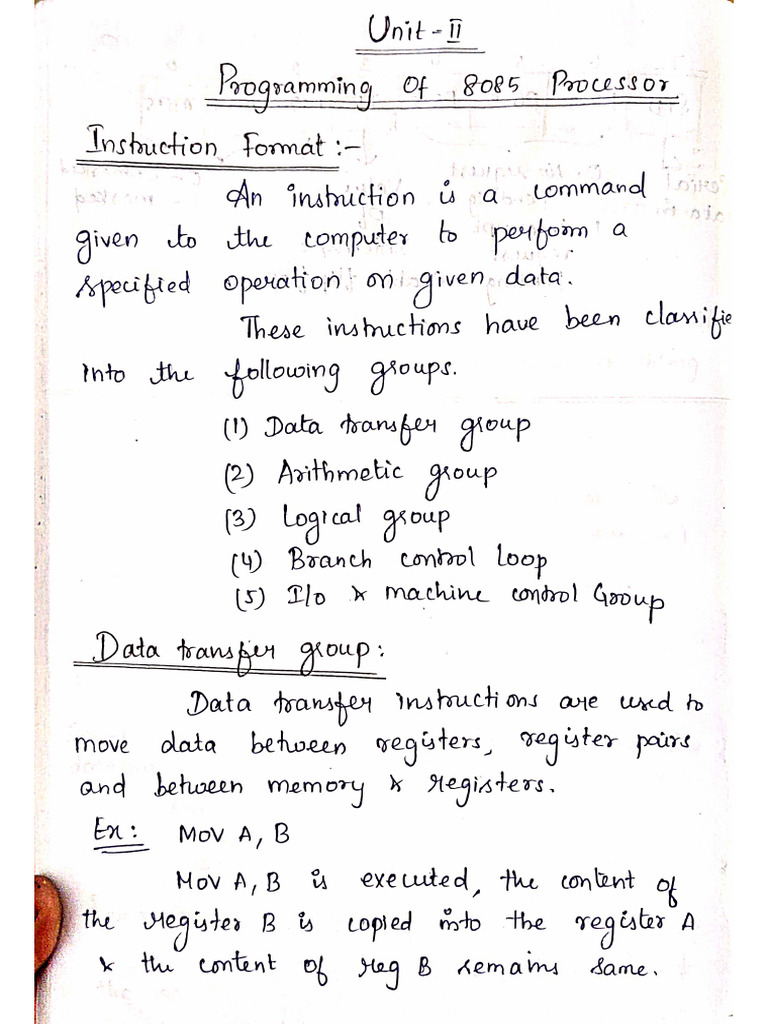 Unit - II
Programming Of 8085 Processor
Instruction Format :-
An instruction is a command
given to the computer to perform a
specified operation on given data.
These instructions have been classifie
into the following groups.
(1) Data transfer group
(2) Arithmetic group
(3) Logical group
(4) Branch control Loop
(5) I/o & machine control Group
Data transfer group:
Data transfer instructions are used to
move data between registers, register pairs
and between memory & registers.
Ex: Mov A, B
Mov A, B is executed, the content of
the register B is copied into the register A
& the content of reg B remains same.